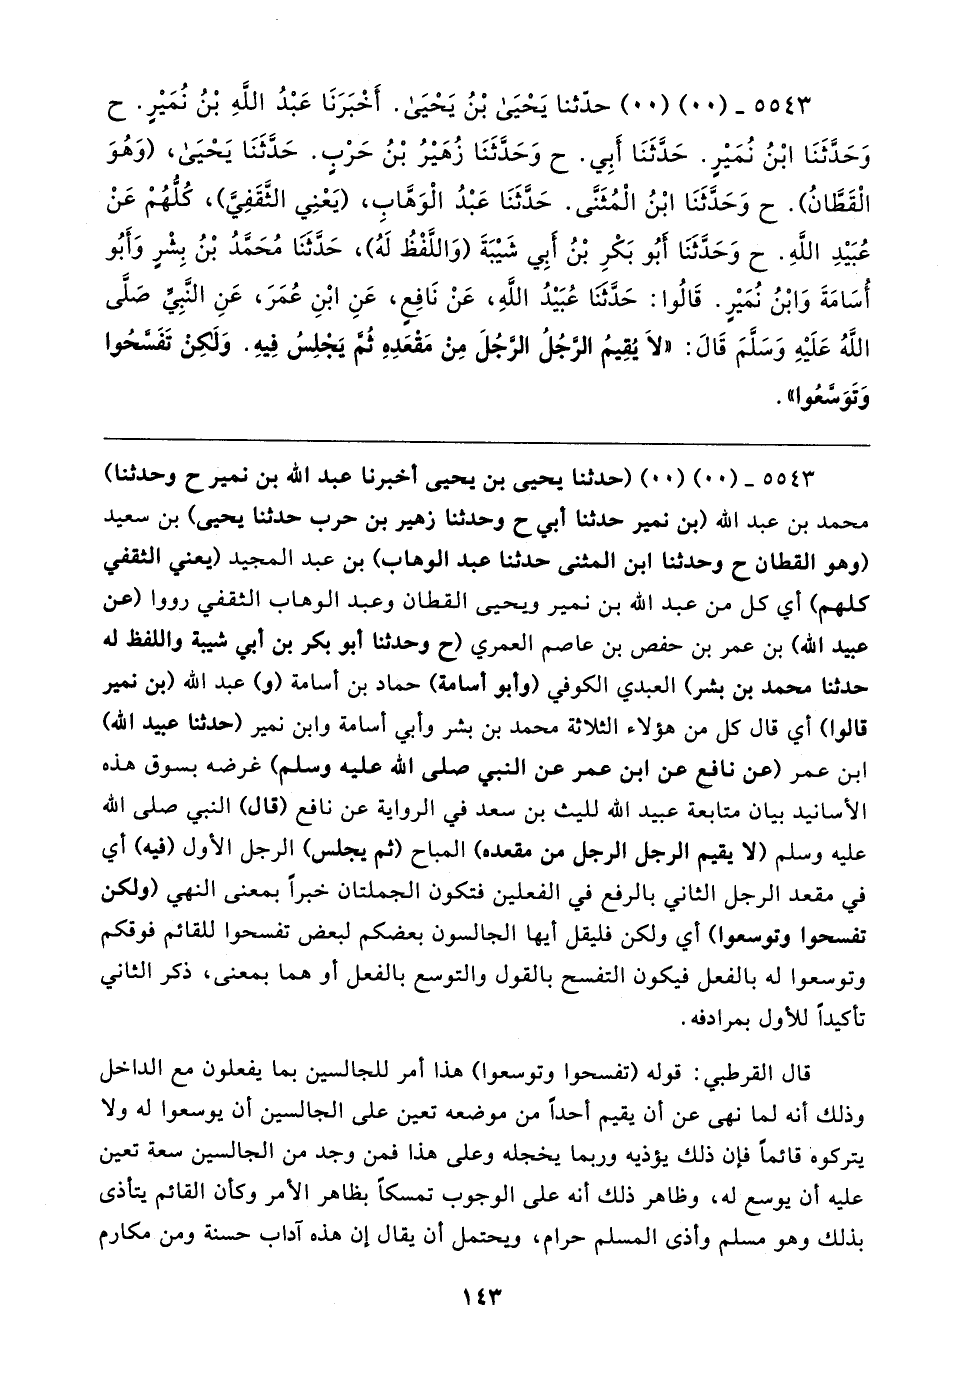 ٥٥٤٣ ـ (٠٠) (٠٠) حدّثنا يَحْيَىٰ بْنُ يَحْيَىٰ. أَخْبَرَنَا عَبْدُ اللَّهِ بْنُ نُمَيْرٍ. ح
وَحَدَّثَنَا ابْنُ نُمَيْرٍ. حَدَّثَنَا أَبِي. ح وَحَدَّثَنَا زُهَيْرُ بْنُ حَرْبٍ. حَدَّثَنَا يَحْيَىٰ، (وَهُوَ
الْقَطَّانُ). ح وَحَدَّثَنَا ابْنُ الْمُثَنَّى. حَدَّثَنَا عَبْدُ الْوَهَّابِ، (يَعْنِي الثَّقَفِيَّ)، كُلُّهُمْ عَنْ
عُبَيْدِ اللَّهِ. ح وَحَدَّثَنَا أَبُو بَكْرِ بْنُ أَبِي شَيْبَةَ (وَاللَّفْظُ لَهُ)، حَدَّثَنَا مُحَمَّدُ بْنُ بِشْرٍ وَأَبُو
أُسَامَةَ وَابْنُ نُمَيْرٍ. قَالُوا: حَدَّثَنَا عُبَيْدُ اللَّهِ، عَنْ نَافِعٍ، عَنِ ابْنِ عُمَرَ، عَنِ النَّبِيِّ صَلَّى
اللَّهُ عَلَيْهِ وَسَلَّمَ قَالَ: «لاَ يُقِيمُ الرَّجُلُ الرَّجُلَ مِنْ مَقْعَدِهِ ثُمَّ يَجْلِسُ فِيهِ. وَلَكِنْ تَفَسَّحُوا
وَتَوَسَّعُوا».
٥٥٤٣ ـ (٠٠) (٠٠) (حدثنا يحيى بن يحيى أخبرنا عبد الله بن نمير ح وحدثنا)
محمد بن عبد الله (بن نمير حدثنا أبي ح وحدثنا زهير بن حرب حدثنا يحيى) بن سعيد
(وهو القطان ح وحدثنا ابن المثنى حدثنا عبد الوهاب) بن عبد المجيد (يعني الثقفي
كلهم) أي كل من عبد الله بن نمير ويحيى القطان وعبد الوهاب الثقفي رووا (عن
عبيد الله) بن عمر بن حفص بن عاصم العمري (ح وحدثنا أبو بكر بن أبي شيبة واللفظ له
حدثنا محمد بن بشر) العبدي الكوفي (وأبو أسامة) حماد بن أسامة (و) عبد الله (بن نمير
قالوا) أي قال كل من هؤلاء الثلاثة محمد بن بشر وأبي أسامة وابن نمير (حدثنا عبيد الله)
ابن عمر (عن نافع عن ابن عمر عن النبي صلى الله عليه وسلم) غرضه بسوق هذه
الأسانيد بيان متابعة عبيد الله لليث بن سعد في الرواية عن نافع (قال) النبي صلى الله
عليه وسلم (لا يقيم الرجل الرجل من مقعده) المباح (ثم يجلس) الرجل الأول (فيه) أي
في مقعد الرجل الثاني بالرفع في الفعلين فتكون الجملتان خبراً بمعنى النهي (ولكن
تفسحوا وتوسعوا) أي ولكن فليقل أيها الجالسون بعضكم لبعض تفسحوا للقائم فوقكم
وتوسعوا له بالفعل فيكون التفسح بالقول والتوسع بالفعل أو هما بمعنى، ذكر الثاني
تأكيداً للأول بمرادفه.
قال القرطبي: قوله (تفسحوا وتوسعوا) هذا أمر للجالسين بما يفعلون مع الداخل
وذلك أنه لما نهى عن أن يقيم أحداً من موضعه تعين على الجالسين أن يوسعوا له ولا
يتركوه قائماً فإن ذلك يؤذيه وربما يخجله وعلى هذا فمن وجد من الجالسين سعة تعين
عليه أن يوسع له، وظاهر ذلك أنه على الوجوب تمسكاً بظاهر الأمر وكأن القائم يتأذى
بذلك وهو مسلم وأذى المسلم حرام، ويحتمل أن يقال إن هذه آداب حسنة ومن مكارم
١٤٣